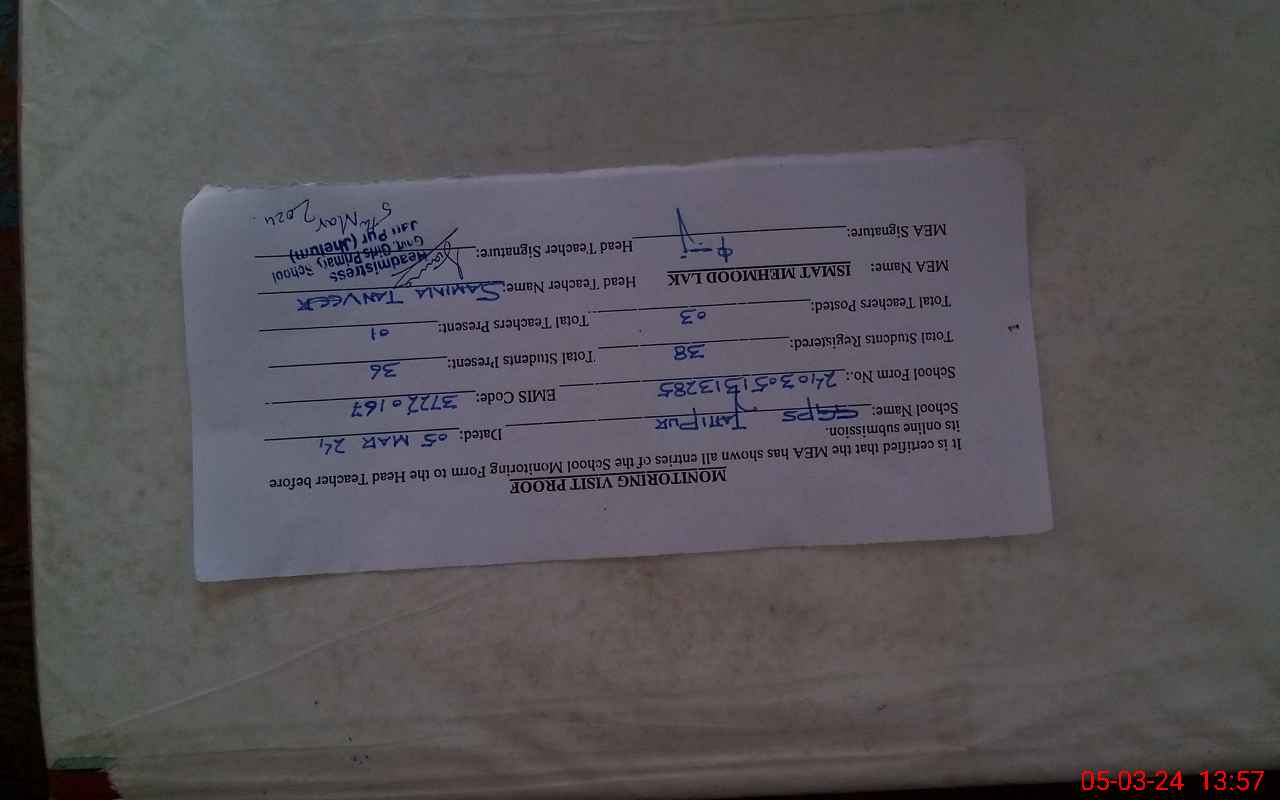 MONITORING VISIT PROOF
It is certified that the MEA has shown all entries of the School Monitoring Form to the Head Teacher before
its online submission.
School Name: GGPS JATTIPUR Dated: 05 MAR 24
School Form No.: 2403051313285 EMIS Code: 37220167
Total Students Registered: 38 Total Students Present: 36
Total Teachers Posted: 03 Total Teachers Present: 01
MEA Name: ISMAT MEHMOOD LAK Head Teacher Name: SAMINA TANVEER
MEA Signature: Head Teacher Signature:
Headmistress
Govt. Girls Primary School
Jatti Pur (Jhelum)
5th Mar 2024
05-03-24 13:57